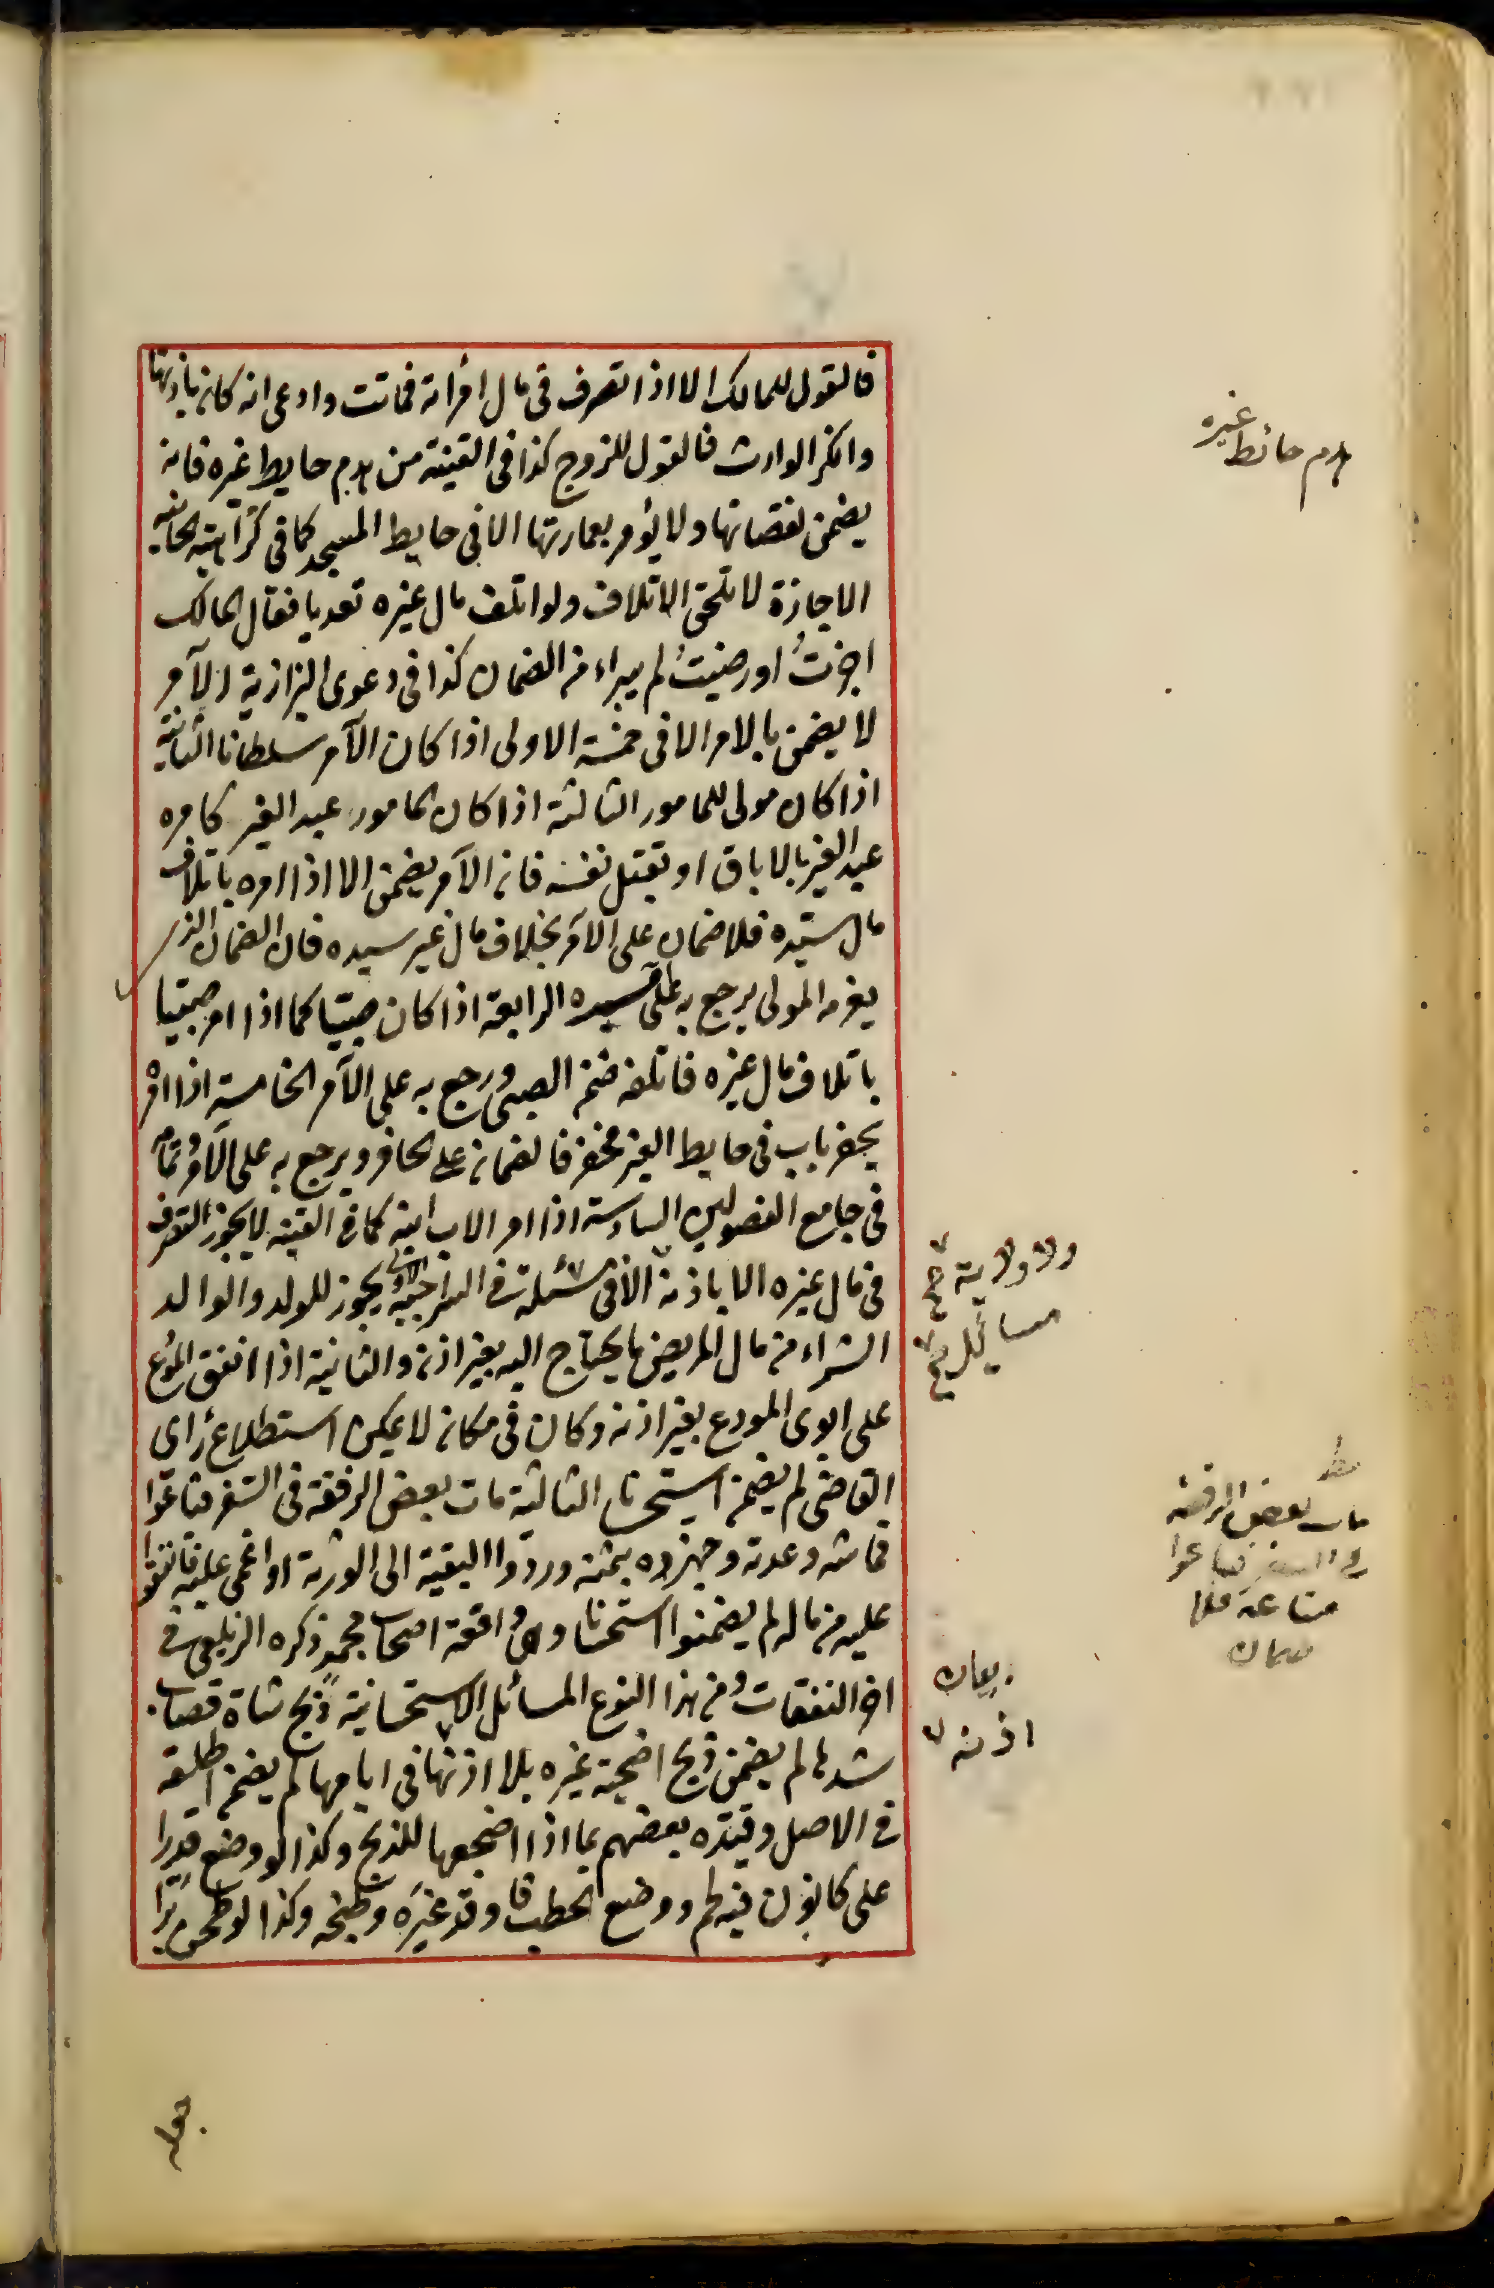 فالقول للمالك الا اذا تصرف فى مال امرأته فماتت وادعى انه كان باذنها
وانكر الوارث فالقول للزوج كذا فى القنية من هدم حايط غيره فانه
يضمن نقصانها ولا يؤمر بعمارتها الا فى حايط المسجد كما فى كراهية الخانية
الاجازة لا تلحق الاتلاف ولو اتلف مال غيره تعديا فقال المالك
اجزتُ او رضيتُ لم يبراء من الضمان كذا فى دعوى البزازية الآمر
لا يضمن بالامر الا فى خمسة الاولى اذا كان الآمر سلطانا الثانية
اذا كان مولى للمامور الثالثة اذا كان المامور عبد الغير كامره
عبد الغير بالاباق او بقتل نفسه فان الآمر يضمن الا اذا امره باتلاف
مال سيّده فلا ضمان على الآمر بخلاف مال غير سيده فان الضمان الذى
يغرمه المولى يرجع به على سيده الرابعة اذا كان صبيّا كما اذا امر صبيّا
باتلاف مال غيره فاتلفه ضمن الصبى ورجع به على الآمر الخامسة اذا امره
بحفر باب فى حايط الغير فحفر فالضمان على الحافر ويرجع به على الآمر وتمامه
فى جامع الفصولين السادسة اذا امر الاب ابنه كما فى القنية لا يجوز التصرف
فى مال غيره الا باذنه الا فى مسئلة فى السراجية الاولى يجوز للولد والوالد
الشراء من مال المريض ما يحتاج اليه بغير اذنه والثانية اذا انفق المودع
على ابوى المودع بغير اذنه وكان فى مكان لا يمكن استطلاع رأى
القاضى لم يضمن استحسانا الثالثة مات بعض الرفقة فى السفر فباعوا
قماشه وعدته وجهزوه بثمنه وردوا البقية الى الورثة او اغمى عليه فانفقوا
عليه من ماله لم يضمنوا استحسانا وهى واقعة اصحاب محمد ذكره الزيلعى فى
اخر النفقات ومن هذا النوع المسائل الاستحسانية ذبح شاة قصاب
شدها لم يضمن ذبح اضحية غيره بلا اذنها فى ايامها لم يضمن اطلقه
فى الاصل وقيّده بعضهم بما اذا اضجعها للذبح وكذا لو وضع قدرا
على كانون فيه لحم ووضع الحطب فاوقد غيره وطبخه وكذا لو طحن برّا
هدم حائط غيره
ولا ولاية
مسائل
مط
مات بعض الرفقه
فى السفر فباعوا
متاعه فلا
ضمان
اذنه